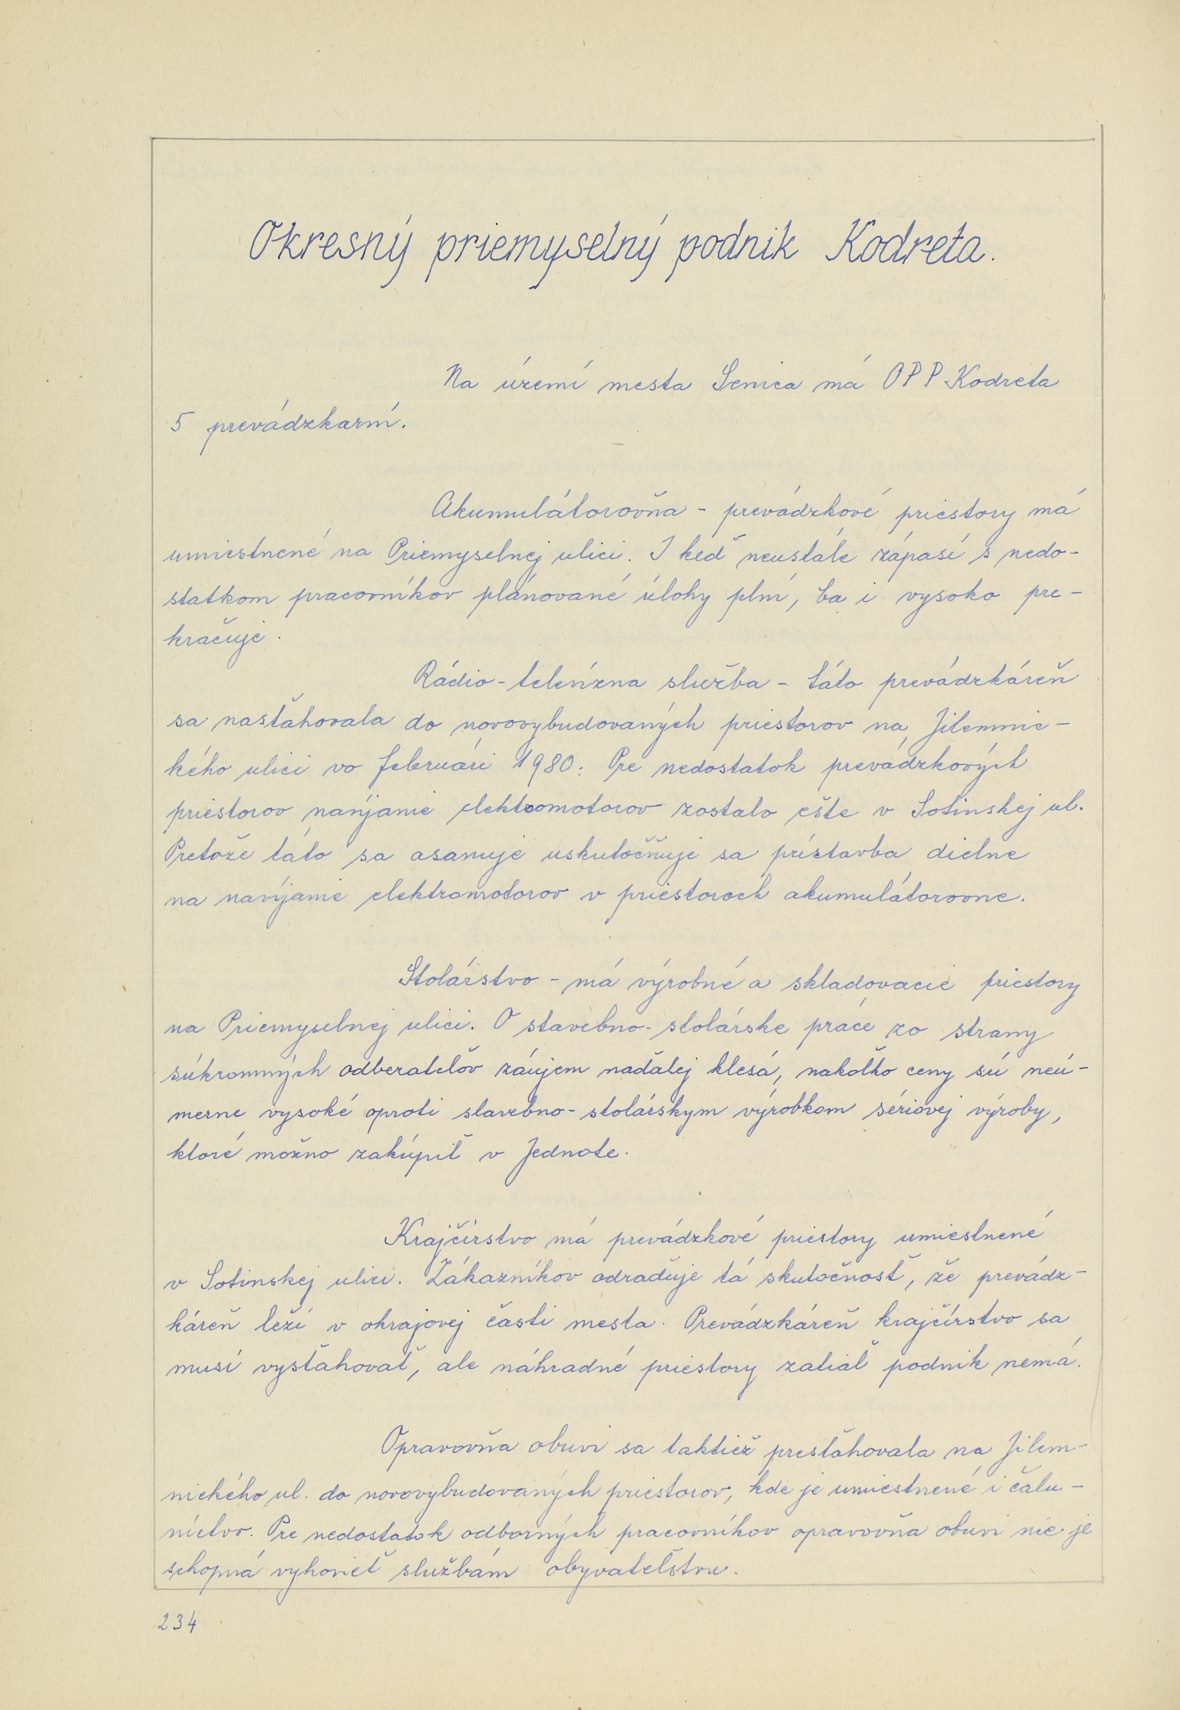 Okresný priemyselný podnik Kodreta.
Na území mesta Senica má OPP Kodreta
5 prevádzkarní.
Akumulátorovňa - prevádzkové priestory má
umiestnené na Priemyselnej ulici. I keď neustále zápasí s nedo-
statkom pracovníkov plánované úlohy plní, ba i vysoko pre-
kračuje.
Rádio-televízna služba - táto prevádzkáreň
sa nasťahovala do novovybudovaných priestorov na Jilemnic-
kého ulici vo februári 1980. Pre nedostatok prevádzkových
priestorov navíjanie elektromotorov zostalo ešte v Sotinskej ul.
Pretože táto sa asanuje uskutočňuje sa prístavba dielne
na navíjanie elektromotorov v priestoroch akumulátorovne.
Stolárstvo - má výrobné a skladovacie priestory
na Priemyselnej ulici. O stavebno-stolárske práce zo strany
súkromných odberateľov záujem naďalej klesá, nakoľko ceny sú neú-
merne vysoké oproti stavebno-stolárskym výrobkom sériovej výroby,
ktoré možno zakúpiť v Jednote.
Krajčírstvo má prevádzkové priestory umiestnené
v Sotinskej ulici. Zákazníkov odraďuje tá skutočnosť, že prevádz-
káreň leží v okrajovej časti mesta. Prevádzkáreň krajčírstvo sa
musí vysťahovať, ale náhradné priestory zatiaľ podnik nemá.
Opravovňa obuvi sa taktiež presťahovala na Jilem-
nického ul. do novovybudovaných priestorov, kde je umiestnené i čalu-
níctvo. Pre nedostatok odborných pracovníkov opravovňa obuvi nie je
schopná vyhovieť službám obyvateľstvu.
234